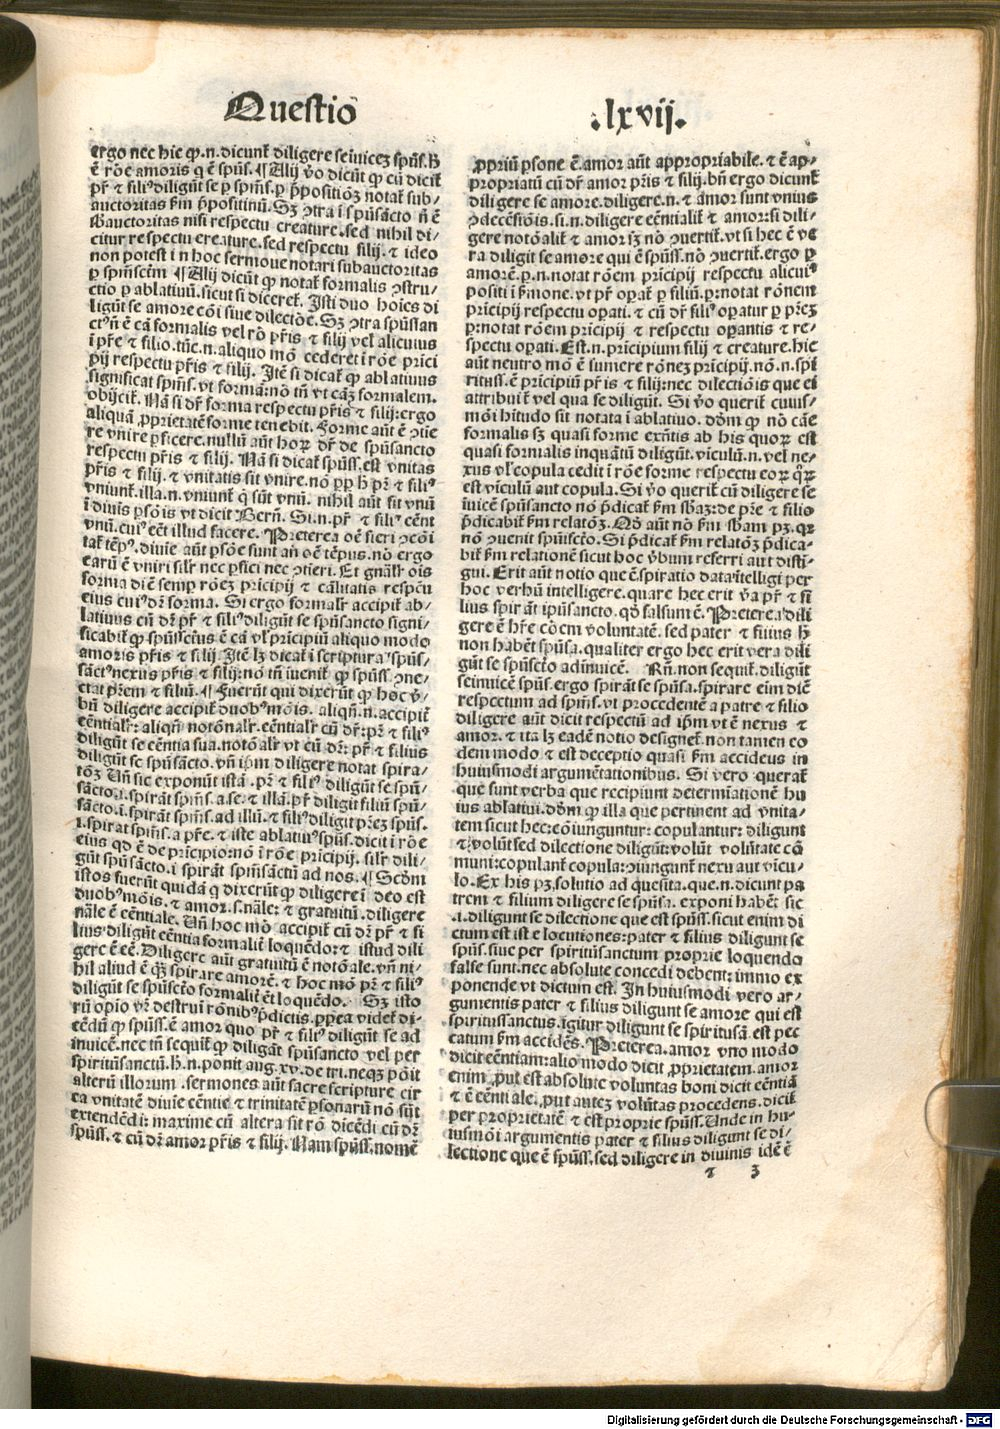 Questio
.lxvij.
ergo nec hic ꝙ.n.dicunt̄ diligere se īuicez spūs. H̄
ē rōe amoris q ē spūs. ¶ Alij ꝟo dicūt ꝙ cū dicit̄
pr̄ ⁊ filiꝰ diligūt se ꝑ spm̄s. ꝑ p̄positōꝫ notat̄ sub/
auctoritas ẜm p̄positinū. Sꝫ ↄtra ī spūsācto ñ ē
s̄bauctoritas nisi respectu creature. sed nihil di/
citur respectu creature. sed respectu filij. ⁊ ideo
non potest in hoc sermone notari subauctoritas
ꝑ spm̄scm̄ ¶ Alij dicūt ꝙ notat̄ formalis ↄstru/
ctio ꝑ ablatiuū. sicut si diceret̄. Isti duo hoīes di
ligūt se amore cōi siue dilectōe. Sꝫ ↄtra spūssan
ctꝰ ñ ē cā formalis vel rō pr̄is ⁊ filij vel alicuius
ī pr̄e ⁊ filio. tūc.n.aliquo mō cederet ī rōe prīci
pij respectu pr̄is ⁊ filij. Itē si dicat̄ ꝙ ablatiuus
significat spm̄s. vt formā: nō tm̄ vt cāꝫ formalem.
obijcit̄. Nā si dr̄ forma respectu pr̄is ⁊ filij: ergo
aliquā ꝓprietatē forme tenebit. Forme aūt ē ↄtīe
re vnire ꝑficere. nullū aūt hoꝝ dr̄ de spūsancto
respectu pr̄is ⁊ filij. Nā si dicat̄ spūss. est vnitas
pr̄is ⁊ filij. ⁊ vnitatis sit vnire. nō ꝓp h̄ pr̄ ⁊ filiꝰ
vniunt̄. illa.n.vniunt̄ q sūt vnū. nihil aūt sit vnū
ī diuīs ꝑsōis vt dicit Bern̄. Si.n.pr̄ ⁊ filiꝰ eēnt
vnū. cuiꝰ eēt illud facere. Preterea oē fieri ↄcōi
tat̄ tēpꝰ. diuīe aūt ꝑsōe sunt añ oē tēpus. nō ergo
earū ē vniri silr̄ nec ꝑfici nec ↄtieri. Et gnālr̄ oīs
forma diē semꝑ rōeꝫ prīcipij ⁊ cālitatis respcū
eius cuiꝰ dr̄ forma. Si ergo formalr̄ accipit̄ ab/
latiuus cū dr̄ pr̄ ⁊ filiꝰ diligūt se spūsancto signi/
ficabit̄ ꝙ spūssctūs ē cā vl̄ prīcipiū aliquo modo
amoris pr̄is ⁊ filij. Itē lꝫ dicat̄ ī scriptura spūs/
sāctꝰ nexus pr̄is ⁊ filij: nō tm̄ iuenit̄ ꝙ spūss. ↄne/
ctat pr̄em ⁊ filiū. ¶ Fuerūt qui dixerūt ꝙ hoc ꝟ/
bū diligere accipit̄ duobꝰ mōis. aliqñ.n.accipit̄
eēntialr̄: aliqñ notōnalr̄. eēntialr̄ cū dr̄: pr̄ ⁊ filiꝰ
diligūt se eēntia sua. notōalr̄ vt cū dr̄: pr̄ ⁊ filius
diligūt se spūsācto. vñ ip̄m diligere notat spira/
tōꝫ Vñ sic exponūt istā. pr̄ ⁊ filiꝰ diligūt se spū/
sācto.i.spirāt spm̄s. a se. ⁊ illā. pr̄ diligit filiū spū/
sācto.i.spirāt spm̄s. ad illū. ⁊ filiꝰ diligit pr̄eꝫ spūs.
i.spirat spm̄s. a pr̄e. ⁊ iste ablatiuꝰ spūs. dicit ī rōe
eius qd ē de prīcipio: nō ī rōe prīcipij. silr̄ dili/
gūt spūsācto.i spirāt spm̄sāctū ad nos. ¶ Scdm̄
istos fuerūt quidā q dixerūt ꝙ diligere ī deo est
duobꝰ mōis. ⁊ amor.s.nāle: ⁊ gratuitū. diligere
nāle ē eēntiale. Vñ hoc mō accipit̄ cū dr̄ pr̄ ⁊ fi
liusꝰ diligūt eēntia formalit̄ loquēdo: ⁊ istud dili
gere ē eē. Diligere aūt gratuitū ē notōale. vñ ni/
hil aliud ē qꝫ spirare amorē. ⁊ hoc mō pr̄ ⁊ filiꝰ
diligūt se spūscto formalit̄ ēt loquēdo. Sꝫ isto
rū opio vr̄ destrui rōnibꝰ p̄dictis. ꝓpea videt̄ di/
cēdū ꝙ spūss. ē amor quo pr̄ ⁊ filiꝰ diligūt se ad
inuicē. nec tn̄ sequit̄ ꝙ diligāt spūsancto vel per
spiritūsanctū. h.n.ponit aug.xv. de tri. neqꝫ pōit
alterū illorum. sermones aūt sacre scripture cir
ca vnitatē diuīe eēntie ⁊ trinitatē ꝑsonarū nō sūt
extendēdi: maxime cū altera sit rō dicēdi cū dr̄
spūss. ⁊ cū dr̄ amor pr̄is ⁊ filij. Nam spūss. nomē
ꝓpriū ꝑsone ē. amor aūt appropriabile. ⁊ ē ap/
propriatū cū dr̄ amor pr̄is ⁊ filij. bn̄ ergo dicunt̄
diligere se amore. diligere.n. ⁊ amor sunt vnius
ↄdecēsiōis. si.n.diligere eēntialit̄ ⁊ amor: si dili/
gere notōalit̄ ⁊ amor sꝫ nō ↄuertit̄. vt si hec ē ve
ra diligit se amore qui ē spūss. nō ↄuertit̄. ergo ꝑ
amorē. ꝑ.n.notat rōem prīcipij respectu alicuiꝰ
positi ī s̄mone. vt pr̄ opat̄ ꝑ filiū. ꝑ: notat rōnem
prīcipij respectu opati. ⁊ cū dr̄ filiꝰ opatur ꝑ pr̄eꝫ
ꝑ: notat rōem prīcipij ⁊ respectu opantis ⁊ re/
spectu opati. Est.n.prīcipium filij ⁊ creature. hic
aūt neutro mō ē sumere rōneꝫ prīcipij. nō.n.spi
rituss. ē prīcipiū pr̄is ⁊ filij: nec dilectiōis que ei
attribuit̄ vel qua se diligūt. Si ꝟo querit̄ cuius/
mōi hitudo sit notata ī ablatiuo. dōm ꝙ nō cāe
formalis sꝫ quasi forme exn̄tis ab his quoꝝ est
quasi formalis inquātū diligūt. vīculū.n.vel ne/
xus vl̄ copula cedit ī rōe forme respectu eoꝝ qꝝ
est vīculū aut copula. Si ꝟo querit̄ cū diligere se
īuicē spūsancto nō p̄dicat̄ ẜm sb̄aꝫ: de pr̄e ⁊ filio
p̄dicabit̄ ẜm relatōꝫ. Qđ aūt nō ẜm sb̄am pꝫ. qꝛ
nō ↄuenit spūiscto. Si p̄dicat̄ ẜm relatōꝫ p̄dica/
bit̄ ẜm relationē sicut hoc ꝟbum referri aut disti/
gui. Erit aūt notio que ē spiratio data ītelligi per
hoc verbū intelligere. quare hec erit ꝟa pr̄ ⁊ fi
lius spirāt ip̄usancto. qđ falsum ē. Preterea dili
gere ē hr̄e cōem voluntatē. sed pater ⁊ filius h̄
non habēt spūsa. qualiter ergo hec erit vera dili
gūt se spūscto adinuicē. Rn̄. non sequit̄. diligūt
seinuicē spūs. ergo spirāt se spūsa. spirare eim diē
respectum ad spm̄s. vt procedentē a patre ⁊ filio
diligere aūt dicit respectū ad ip̄m vt ē nexus ⁊
amor. ⁊ ita lꝫ eadē notio designet̄. non tamen eo
dem modo ⁊ est deceptio quasi ẜm accidens in
huiusmodi argumētationibus. Si vero querat̄
que sunt verba que recipiunt determīationē hu
ius ablatiui. dōm ꝙ illa que pertinent ad vnita/
tem sicut hec: cōiunguntur: copulantur: diligunt
⁊ volūt sed dilectione diligūt: volūt volūtate cō
muni: copulant̄ copula: ↄiungunt̄ nexu aut vīcu/
lo. Ex his pꝫ solutio ad quesita. que.n.dicunt pa
trem ⁊ filium diligere se spūsa. exponi habēt sic
.i.diligunt se dilectione que est spūss. sicut enim di
ctum est iste locutiones: pater ⁊ filius diligunt se
spūs. siue per spiritūsanctum proprie loquendo
false sunt. nec absolute concedi debent: immo ex
ponende vt dictum est. In huiusmodi vero ar/
gumentis pater ⁊ filius diligunt se amore qui est
spiritussanctus. igitur diligunt se spiritusā est pec
catum ẜm accidēs. Preterea. amor vno modo
dicit eēntiam: alio modo dicit ꝓprietatem. amor
enim ꝓut est absolute voluntas boni dicit eēntiā
⁊ ē eēntiale. ꝓut autez volūtas procedens. dicit̄
per proprietatē ⁊ est proprie spūss. Unde in hu/
iusmōi argumentis pater ⁊ filius diligunt se di/
lectione que ē spūss. sed diligere in diuinis idē ē
⁊ 3
Digitalisierung gefördert durch die Deutsche Forschungsgemeinschaft - DFG